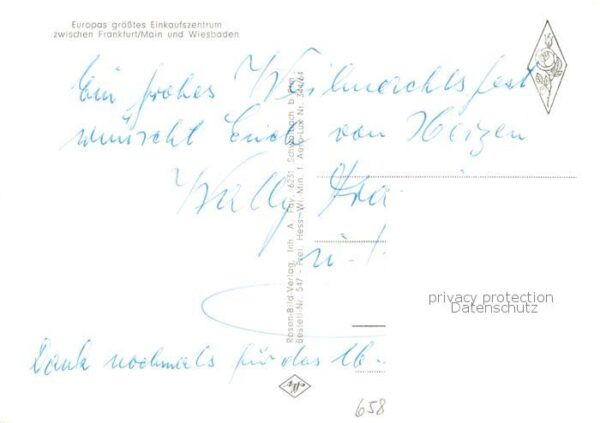 Europas größtes Einkaufszentrum
zwischen Frankfurt/Main und Wiesbaden
Ein frohes Weihnachtsfest
wünscht Euch von Herzen
Wally
u.
Dank nochmals für das
Rosen-Bild-Verlag, Inh. A. Fay, 6231 Schwalbach b. Ffm.
Bestell-Nr. 547 - Frei. Hess. Wi. Min. f. Aero-Lux Nr. 344/64
privacy protection
Datenschutz
658